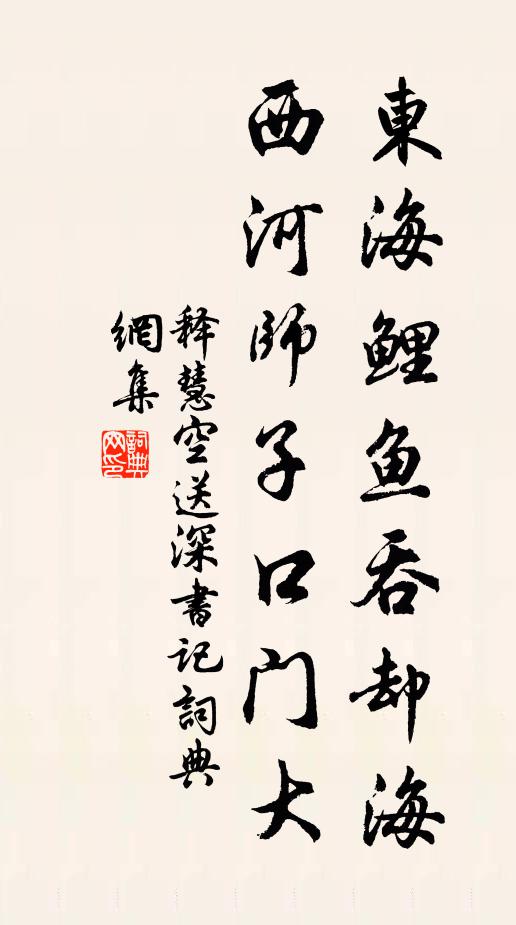 東海鲤鱼吞却海
西河師子口门大
释慧空送深書记詞典
網集
詞典
网印